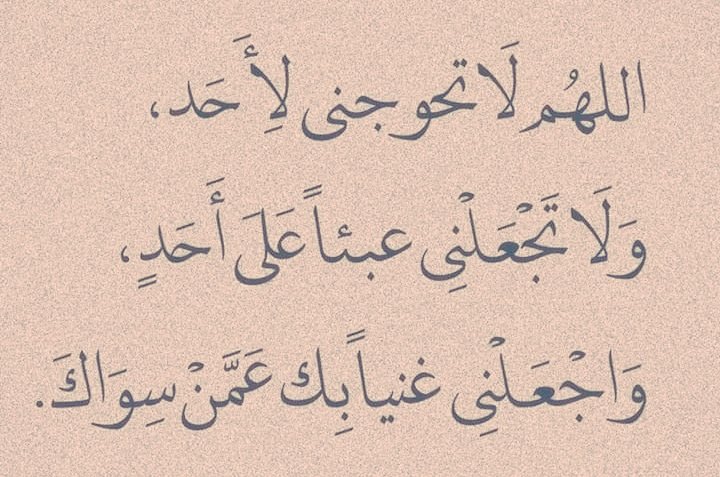 اللهُم لَا تحوجنى لِأَحَد،
وَلَا تَجْعَلْنِى عبئاً عَلىَ أَحَدٍ،
وَاجْعَلْنِى غنياً بِك عَمَّنْ سِوَاكَ.